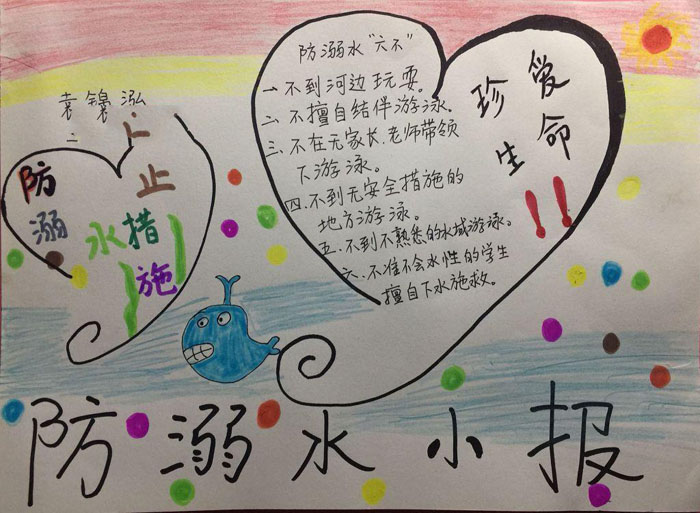 防溺水“六不”
一、不到河边玩耍。
二、不擅自结伴游泳。
三、不在无家长、老师带领
下游泳。
四、不到无安全措施的
地方游泳。
五、不到不熟悉的水域游泳。
六、不准不会水性的学生
擅自下水施救。
珍爱
生命
!!
袁锦泓
二
防止
溺
水措
施
防溺水小报